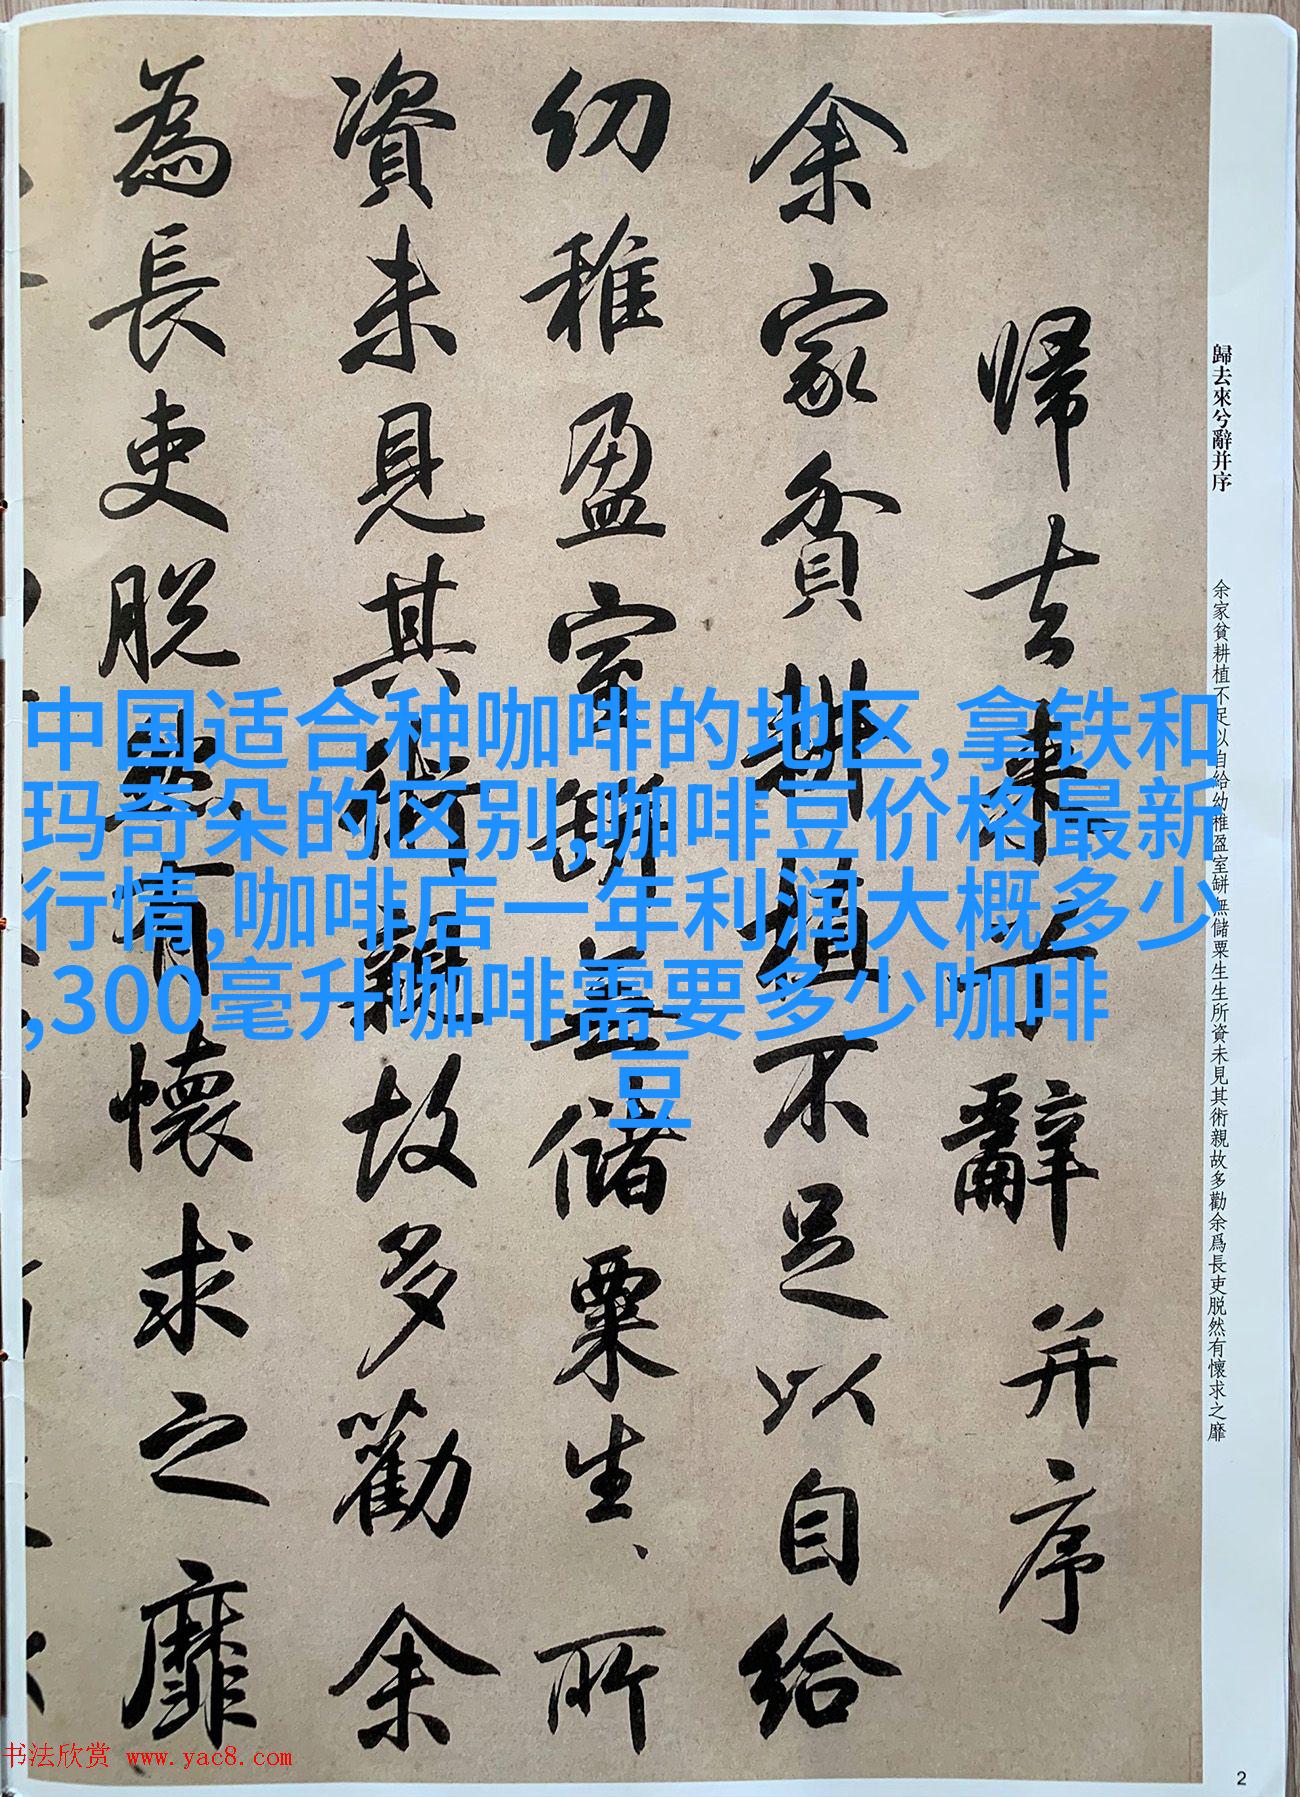 歸去來兮辭并序
余家貧耕植不足以自給幼稚盈室缾無儲粟生生所資未見其術親故多勸余爲長吏脱然有懷求之靡
歸去来兮辭并序
余家貧耕植不足以自給
幼稚盈室缾無儲粟生、所
資未見其術親故多勸余
為長吏脱然有懷求之靡
中国适合种咖啡的地区,拿铁和
玛奇朵的区别,咖啡豆价格最新
行情,咖啡店一年利润大概多少
,300毫升咖啡需要多少咖啡
豆
书法欣赏 www.yac8.com
2